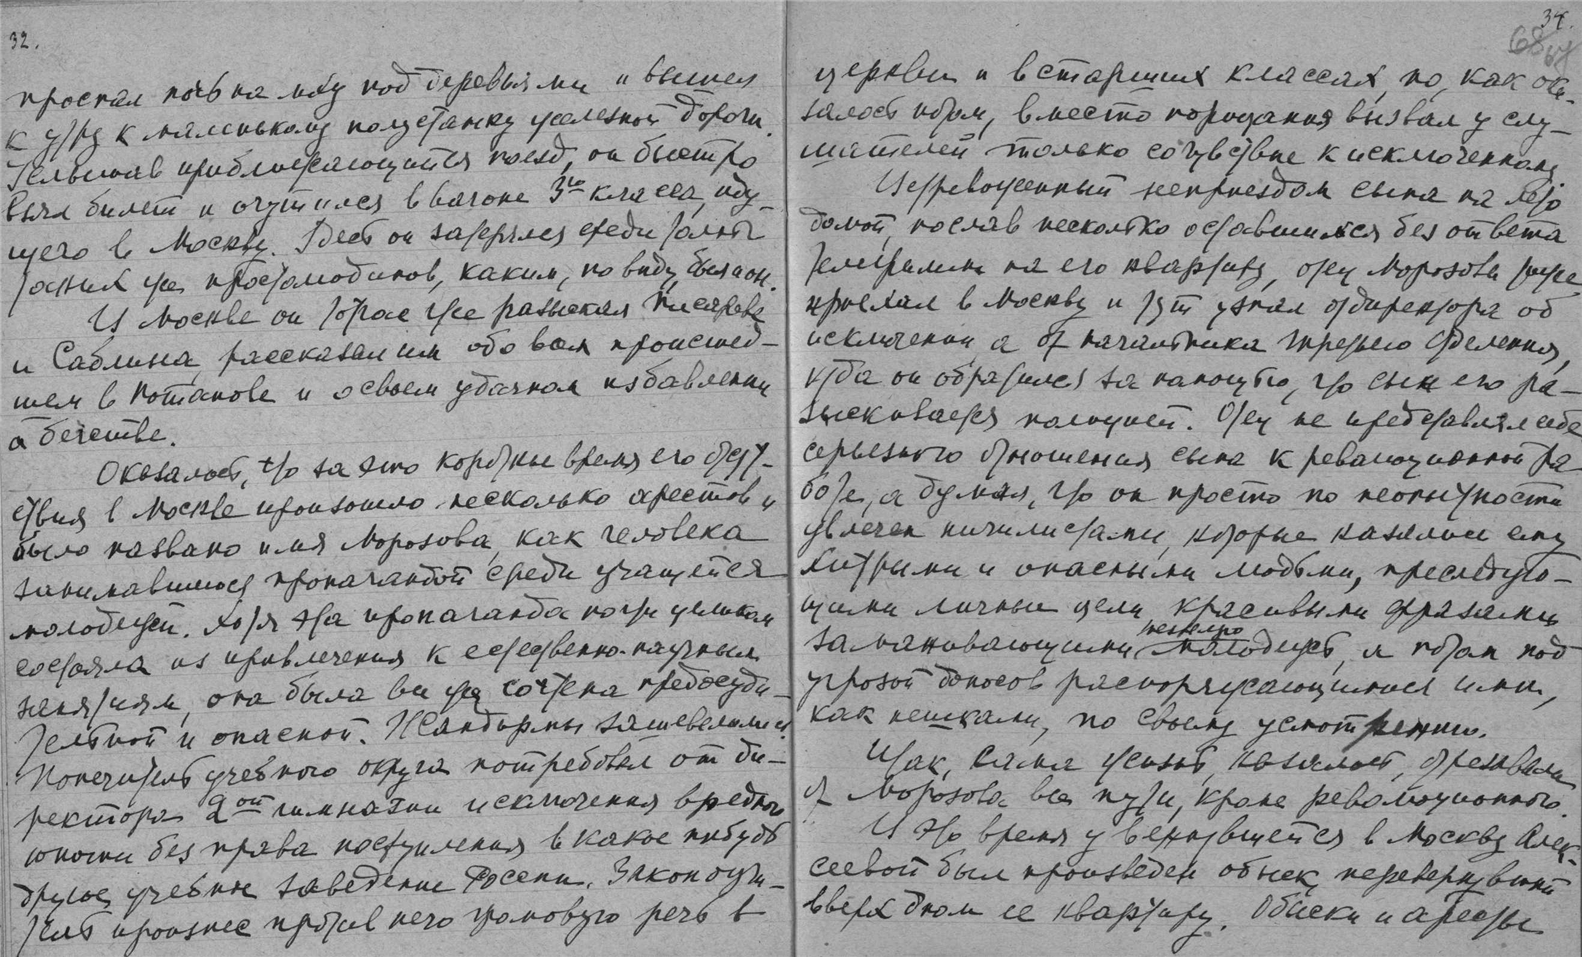 32.
проспал ночь на мху под деревьями и вышел
к утру к маленькому полустанку железной дороги.
Услышав приближающийся поезд, он быстро
взял билет и очутился в вагоне 3го класса, иду-
щего в Москву. Здесь он затерялся среди толпы
таких же простолюдинов, каким, по виду, был и он.
В Москве он тотчас же разыскал Писарева
и Саблина, рассказал им обо всем происшед-
шем в Потапове и о своем удачном избавлении
и бегстве.
Оказалось, что за это короткое время его отсут-
ствия в Москве произошло несколько арестов и
было названо имя Морозова, как человека
занимавшегося пропагандой среди учащейся
молодежи. Хотя эта пропаганда почти целиком
состояла из привлечения к естественно-научным
занятиям, она была все же сочтена предосуди-
тельной и опасной. Жандармы зашевелились.
Попечитель учебного округа потребовал от ди-
ректора 2ой гимназии исключения вредного
юноши без права поступления в какое нибудь
другое учебное заведение России. Законоучи-
тель произнес против него громовую речь в
34.
68
церкви и в старших классах, но, как ока-
залось потом, вместо порицания вызвал у слу-
шателей только сочувствие к исключенному
Встревоженный неприездом сына на лето
домой, послав несколько оставшихся без ответа
телеграмм на его квартиру, отец Морозова тоже
приехал в Москву и тут узнал от директора об
исключении, а от начальника третьего отделения,
куда он обратился за помощью, что сын его ра-
зыскивается полицией. Отец не представлял себе
серьезного отношения сына к революционной ра-
боте, а думал, что он просто по неопытности
увлечен нигилистами, которые казались ему
хитрыми и опасными людьми, преследую-
щими личные цели, красивыми фразами
заманивающими молодежь, а потом под
угрозой доносов распоряжающимися ими,
как пешками, по своему усмотрению.
Итак, сама жизнь, казалось, отрезывала
у Морозова все пути, кроме революционного.
В это время у вернувшейся в Москву Алек-
сеевой был произведен обыск, перевернувший
вверх дном ее квартиру. Обыски и аресты